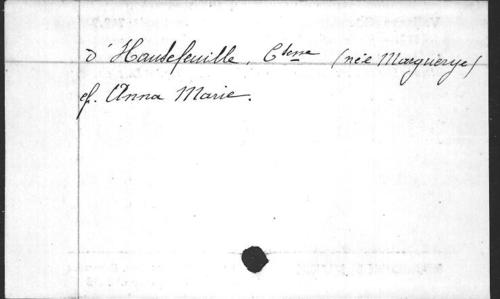 d'Hautefeuille, Ctesse (née Marguerye)
cf. Anna Marie.